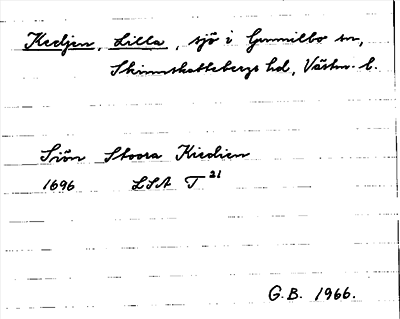 Kedjen, Lilla, sjö i Gunnilbo sn,
Skinnskattebergs hd, Västm. l.
Siön Stoora Kiedien
1696 LSA T 21
G.B. 1966.